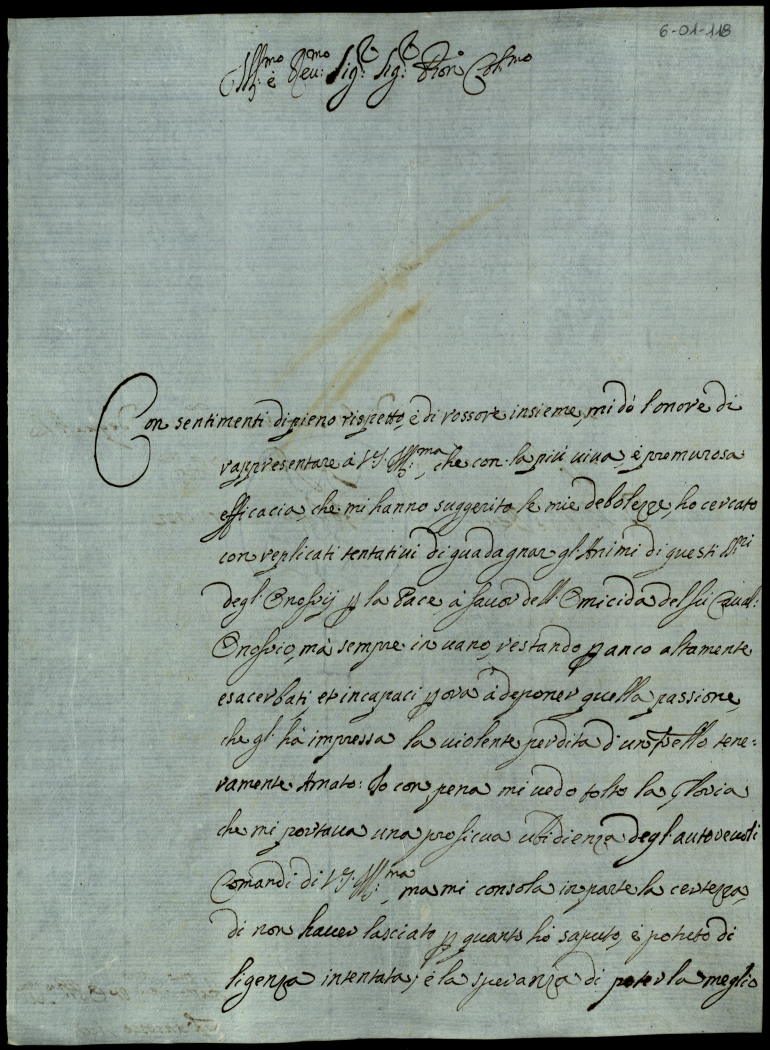 6-01-118
Ill:mo è Reu:mo Sig.r Sig.r Pron Col:mo
Con sentimenti di pieno rispetto, è di rossore insieme, mi dò l'onore di
rappresentare à V.S. Ill:ma, che con la più viva, è premurosa
efficacia, che mi hanno suggerito le mie debolezze, ho cercato
con replicati tentativi di guadagnar gl'Animi di questi SS:ri
degl' Onofrij p la Pace à favor dell'Omicida del fù Caval:
Onofrio, mà sempre in uano, restando p anco altamente
esacerbati, et incapaci p ora à deponer quella passione,
che gl' hà impressa la uiolente perdita d'un frello tene-
ramente Amato: Io con pena mi uedo tolto la Gloria
che mi portaua una proficua ubidienza degl' autoreuoli
Comandi di V.S. Ill:ma, ma mi consola in parte la certezza,
di non hauer lasciato p quanto hò saputo, è potuto di
ligenza intentata; è la speranza di poterla meglio